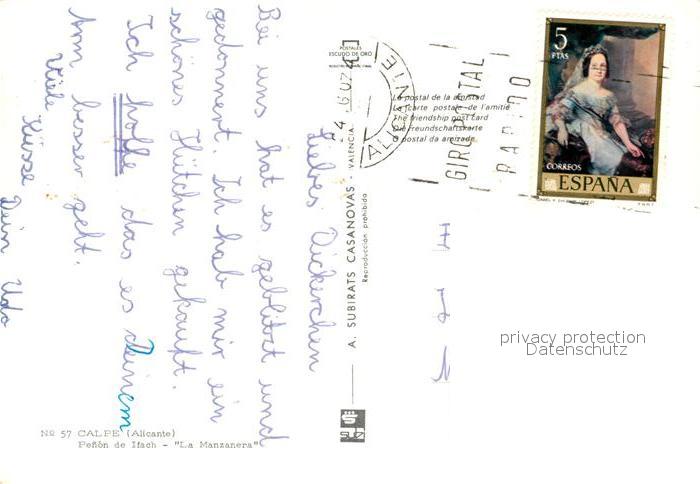 Liebes Dickerchen
Bei uns hat es geblitzt und
gedonnert. Ich hab mir ein
schönes Hütchen gekauft.
Ich hoffe das es Deinem
Arm besser geht.
Viele
Küsse
Dein Udo
Nº 57 CALPE (Alicante)
Peñón de Ifach - "La Manzanera"
A. SUBIRATS CASANOVAS - VALENCIA
Reproducción prohibida
POSTALES
ESCUDO DE ORO
La postal de la amistad
La carte postale de l'amitié
The friendship post card
Die Freundschaftskarte
O postal da amizade
ALICANTE
GIRO POSTAL
RAPIDO
5
PTAS
CORREOS
ESPAÑA
privacy protection
Datenschutz